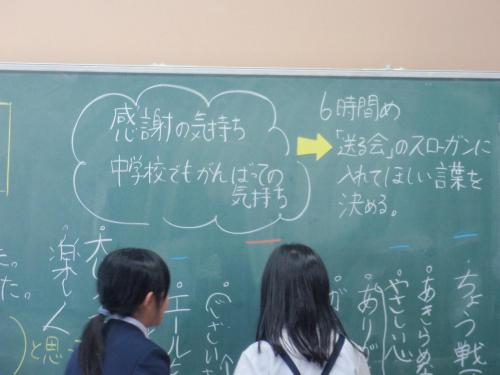 感謝の気持ち
中学校でもがんばっての
気持ち
6時間め
「送る会」のスローガンに
入れてほしい言葉を
決める。
ちょう戦
あきらめな
やさしい心
ありが
ございま
エール
楽しん
と思
た。